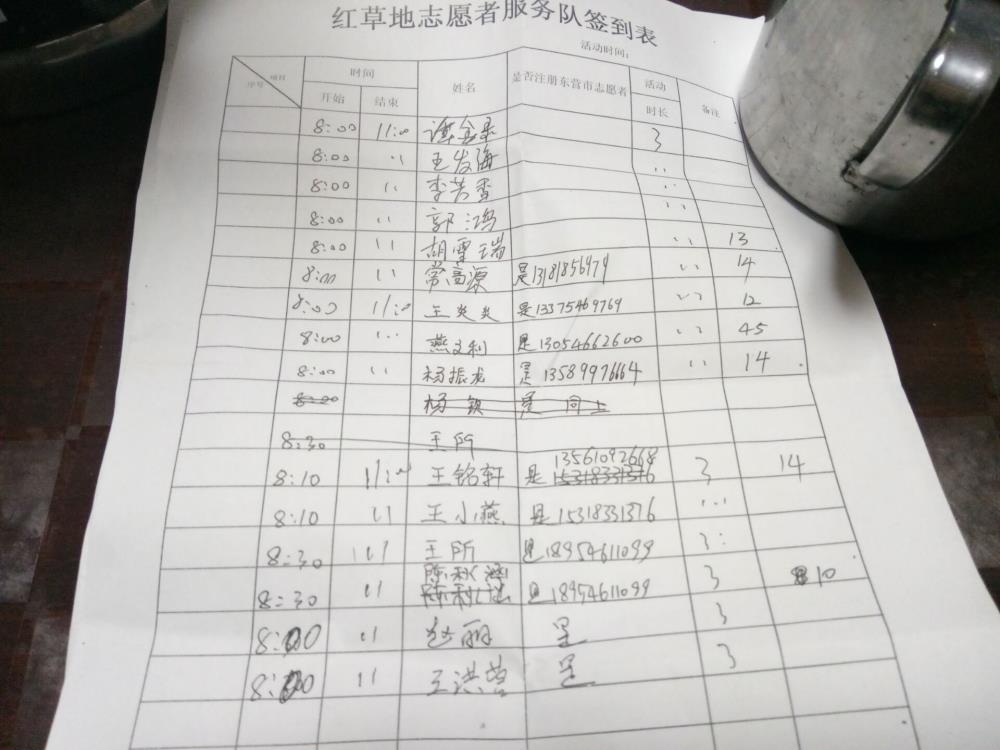 红草地志愿者服务队签到表
活动时间:
序号 项目 时间 姓名 是否注册东营市志愿者 活动 备注
开始 结束 时长
8:00 11:00 谭金录 3
8:00 〃 王发海 〃
8:00 〃 李芳香 〃
8:00 〃 郭鸿 〃
8:00 〃 胡雪瑞 〃 13
8:00 〃 常高源 是13181856979 〃 14
8:00 11:00 王炎炎 是13375469769 〃 12
8:00 〃 燕文利 是13054662600 〃 45
8:00 〃 杨振龙 是13589976664 〃 14
8:00 杨镇 是 同上
8:30 王所
13561092668
8:10 11:00 王铭轩 是15318331376 3 14
8:10 〃 王小燕 是15318331376 〃
8:30 〃 王所 是18954611099 3
陈秋涵
8:30 〃 是18954611099 3 10
8:00 〃 赵丽 是 3
8:00 〃 王洪营 是 3